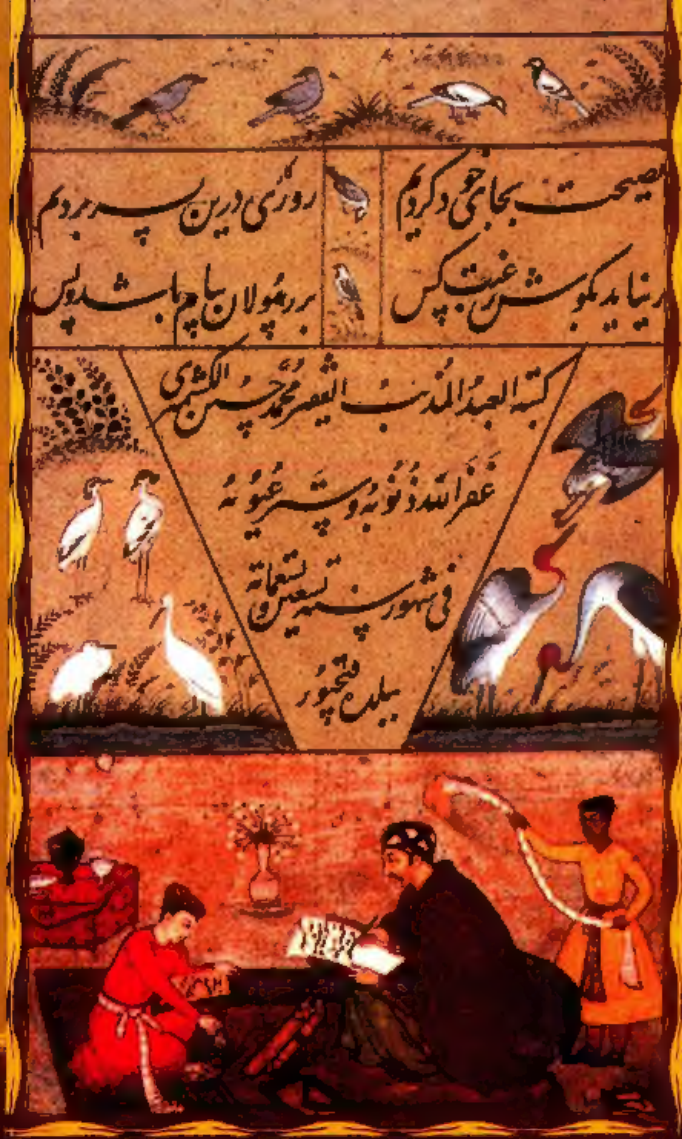 نصیحت بجای خود کردیم روزکاری درین بسر بردیم
نیاید بکوش رغبت کس بر رسولان پیام باشد و بس
کتبه العبد المذنب الفقیر محمد حسین الکشمیری
غفر الله ذنوبه و ستر عیوبه
فی شهور سنه تسعین و تسعمائة
ببلده فتحپور